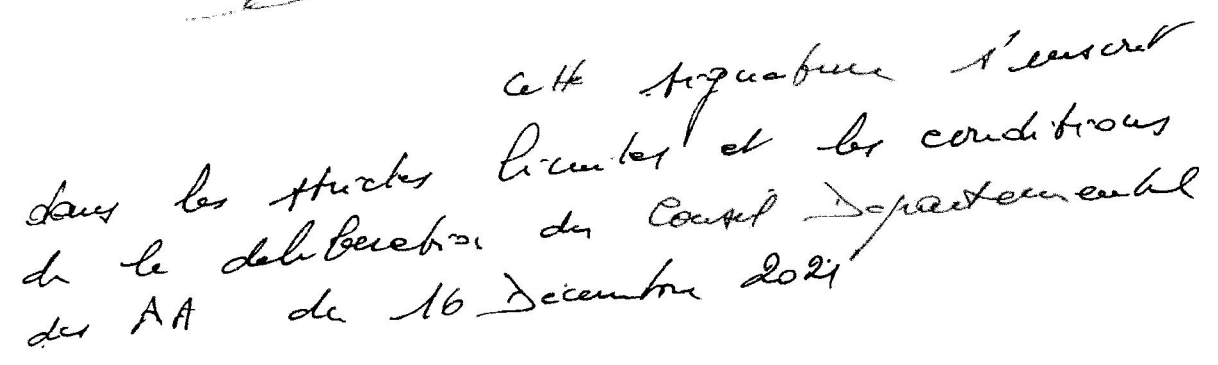 Cette signature s'inscrit
dans les strictes limites et les conditions
de la deliberation du Conseil Departemental
des AA du 16 Decembre 2021